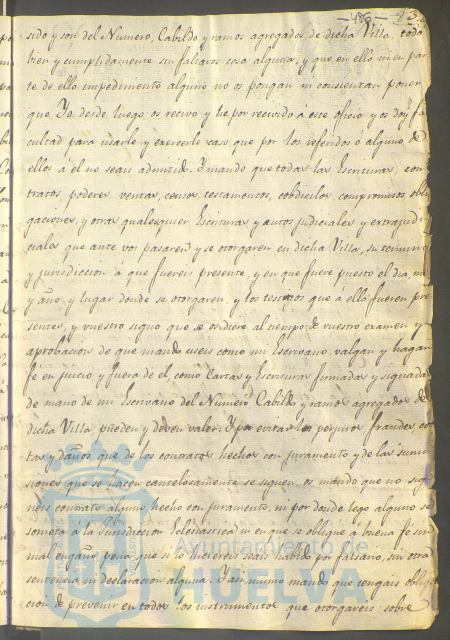 -486- 83
sido y son del Numero, Cabildo y ramos agregados de dicha Villa, todo
bien y cumplidamente sin faltaros cosa alguna, y que en ello ni en par
te de ello impedimento alguno no os pongan ni consientan poner
que Yo desde luego os recivo y he por recivido á este oficio y os doy fa
cultad para usarle y exercerlo caso que por los referidos ó alguno de
ellos á el no seais admitido. Y mando que todas las Escrituras, con
tratos, poderes, ventas, censos, testamentos, cobdicilos compromisos obli
gaciones, y otras qualesquier Escrituras y autos judiciales y extrajudi
ciales que ante vos pasaren y se otorgaren en dicha Villa, su termino
y jurisdiccion á que fuereis presente, y en que fuere puesto el dia, mes
y año, y lugar donde se otorgaren, y los testigos que á ello fueren pre
sentes, y vuestro signo que se os diere al tiempo de vuestro examen y
aprobacion de que mando useis como mi Escrivano, valgan y hagan
fe en juicio y fuera de el, como Cartas y Escrituras firmadas y signadas
de mano de mi Escrivano del Numero Cabildo y ramos agregados de
dicha Villa pueden y deven valer. Y por evitar los perjuros fraudes cos
tas y daños que de los contratos hechos con juramento y de las sumi
siones que se hacen cautelosamente se siguen, os mando que no sig
neis contrato alguno hecho con juramento, ni por donde lego alguno se
someta á la Jurisdiccion Eclesiastica ni en que se obligue á buena fe sin
mal engaño, pena que si lo hiciereis seais habido por falsario, sin otra
sentencia ni declaracion alguna. Y asi mismo mando que tengais obliga
cion de prevenir en todos los instrumentos que otorgareis sobre
Ayuntamiento de
HUELVA